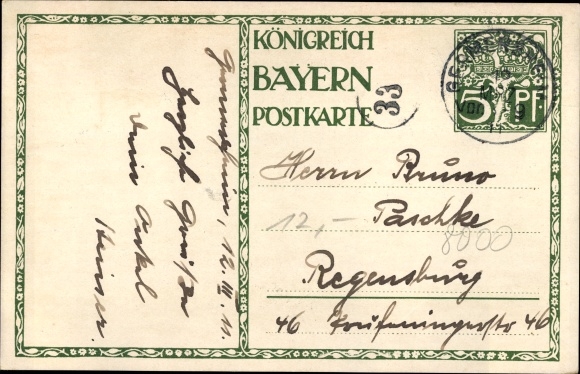 KÖNIGREICH
BAYERN
POSTKARTE
33
5 PF
VOR 9
Herrn Bruno
12,- Paschke
8000
Regensburg
46 Prüfeningerstr 46
12. III. 11.
Herzliche Grüße
Dein Onkel